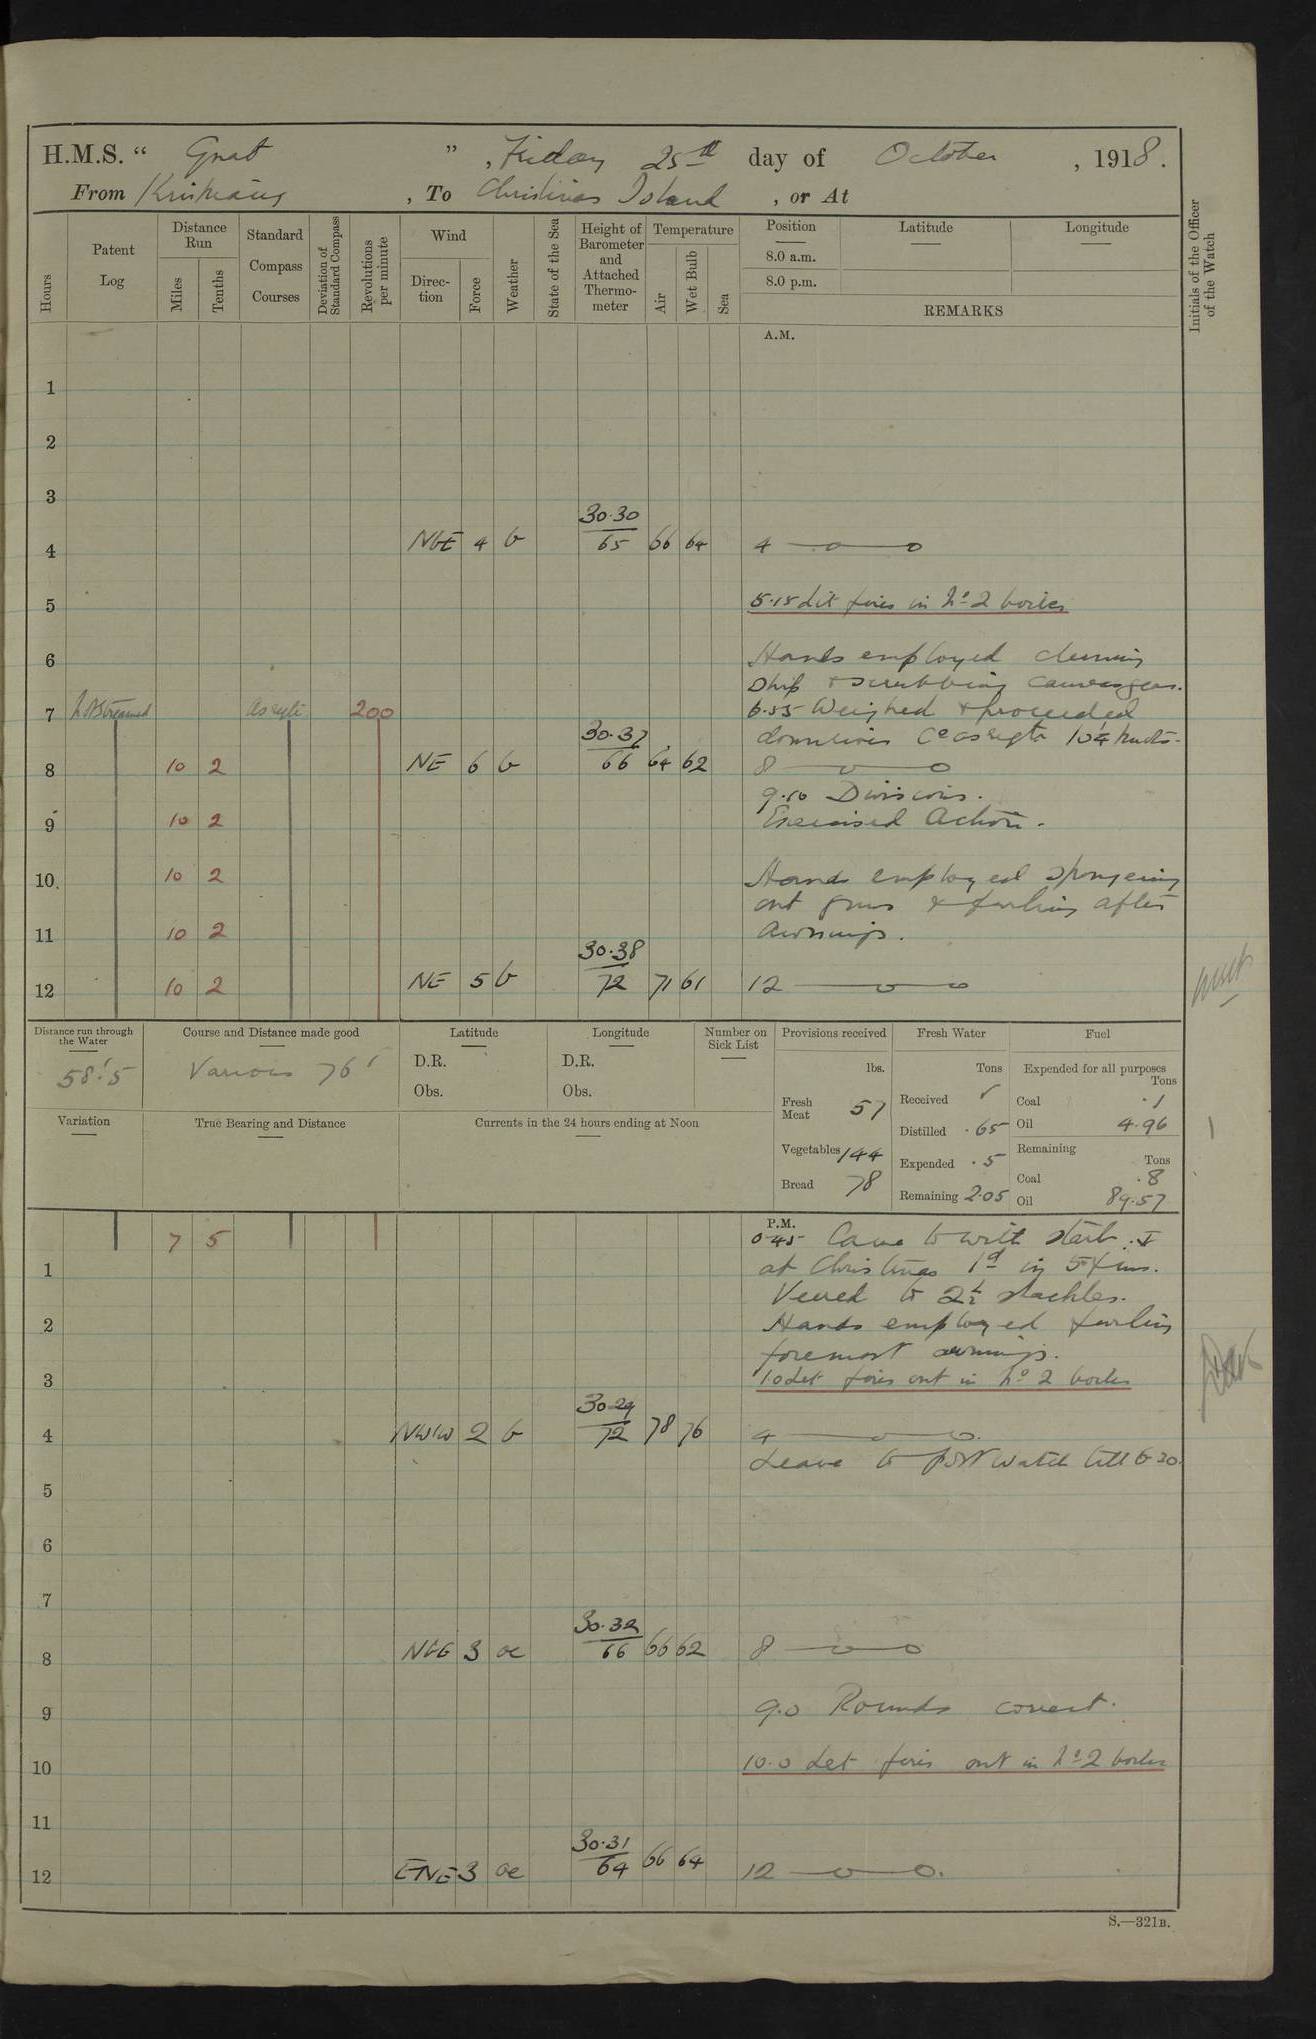 H.M.S. “ Gnat ” , Friday 25th day of October , 1918.
From , To Christmas Island , or At
Hours
Patent Log
Distance Run
Miles
Tenths
Standard Compass Courses
Deviation of Standard Compass
Revolutions per minute
Wind
Direction
Force
Weather
State of the Sea
Height of Barometer and Attached Thermometer
Temperature
Air
Wet Bulb
Sea
Position
8.0 a.m.
8.0 p.m.
Latitude
Longitude
REMARKS
Initials of the Officer of the Watch
A.M.
1
2
3
4 NbE 4 b 30.30 65 66 64 4
5 5.15 Lit fires in No 2 boiler
6 Hands employed cleaning
ship & scrubbing
7 Not Streamed as reqte 200 6.55 Weighed & proceeded
downriver Co as reqte 10¼ knots.
8 10 2 NE 6 b 30.37 66 64 62 8
9.10 Divisions.
9 10 2 Exercised Action.
10 10 2 Hands employed sponging
out guns & furling after
11 10 2 awnings.
12 10 2 NE 5 b 30.38 72 71 61 12
Distance run through the Water
58.5
Course and Distance made good
Various 76'
Latitude
D.R.
Obs.
Longitude
D.R.
Obs.
Number on Sick List
Provisions received
lbs.
Fresh Meat 57
Vegetables 144
Bread 78
Fresh Water
Tons
Received
Distilled .65
Expended .5
Remaining 2.05
Fuel
Expended for all purposes
Tons
Coal .1
Oil 4.96
Remaining
Tons
Coal .8
Oil 89.57
Variation
True Bearing and Distance
Currents in the 24 hours ending at Noon
P.M.
7 5 0.45 Came to with starb.
1 at Christmas Id in 5 fms.
Veered to 2½ shackles.
2 Hands employed furling
foremost awnings.
3 10 Let fires out in No 2 boiler
4 NWbW 2 b 30.29 72 78 76 4
Leave to port watch till 6.30.
5
6
7
8 NEE 3 oc 30.32 66 66 62 8
9 9.0 Rounds correct.
10 10.0 Let fires out in No 2 boiler
11
12 ENE 3 oc 30.31 64 66 64 12
S.—321B.